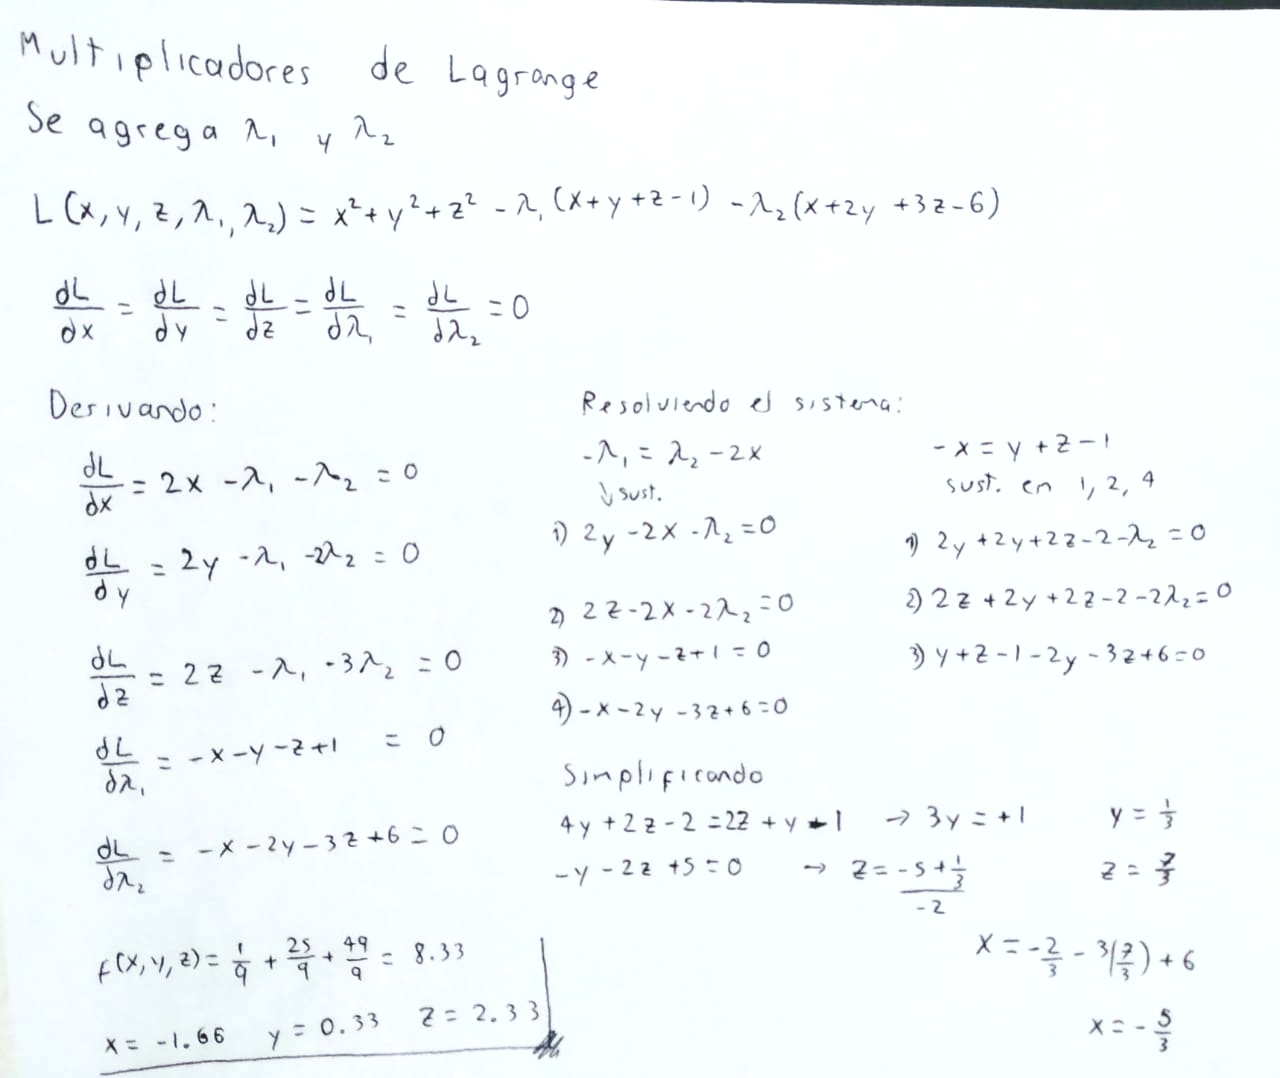 Multiplicadores de Lagrange
Se agrega λ₁ y λ₂
L(x, y, z, λ₁, λ₂) = x² + y² + z² - λ₁(x+y+z-1) - λ₂(x+2y+3z-6)
dL/dx = dL/dy = dL/dz = dL/dλ₁ = dL/dλ₂ = 0
Derivando:
dL/dx = 2x - λ₁ - λ₂ = 0
dL/dy = 2y - λ₁ - 2λ₂ = 0
dL/dz = 2z - λ₁ - 3λ₂ = 0
dL/dλ₁ = -x-y-z+1 = 0
dL/dλ₂ = -x-2y-3z+6 = 0
Resolviendo el sistema:
-λ₁ = λ₂ - 2x
↓ sust.
1) 2y-2x-λ₂=0
2) 2z-2x-2λ₂=0
3) -x-y-z+1=0
4) -x-2y-3z+6=0
-x = y+z-1
sust. en 1, 2, 4
1) 2y+2y+2z-2-λ₂=0
2) 2z+2y+2z-2-2λ₂=0
3) y+z-1-2y-3z+6=0
Simplificando
4y+2z-2=2z+y-1 → 3y=+1 y=1/3
-y-2z+5=0 → z=(-5+1/3)/-2 z=7/3
x=-2/3-3(7/3)+6
x=-5/3
f(x,y,z)=1/9+25/9+49/9=8.33
x=-1.66 y=0.33 z=2.33